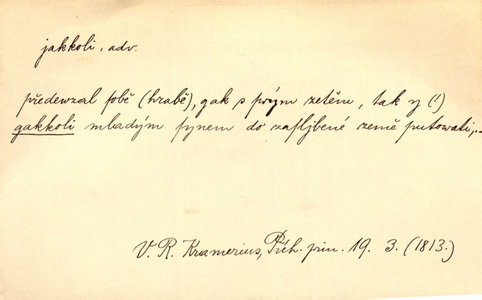 jakkoli, adv.
předewzal sobě (hrabě), gak s swým zetěm, tak y (!)
gakkoli mladým synem do zaslíbené země putowati,...
V. R. Kramerius, Příh. prin. 19. 3. (1813.)